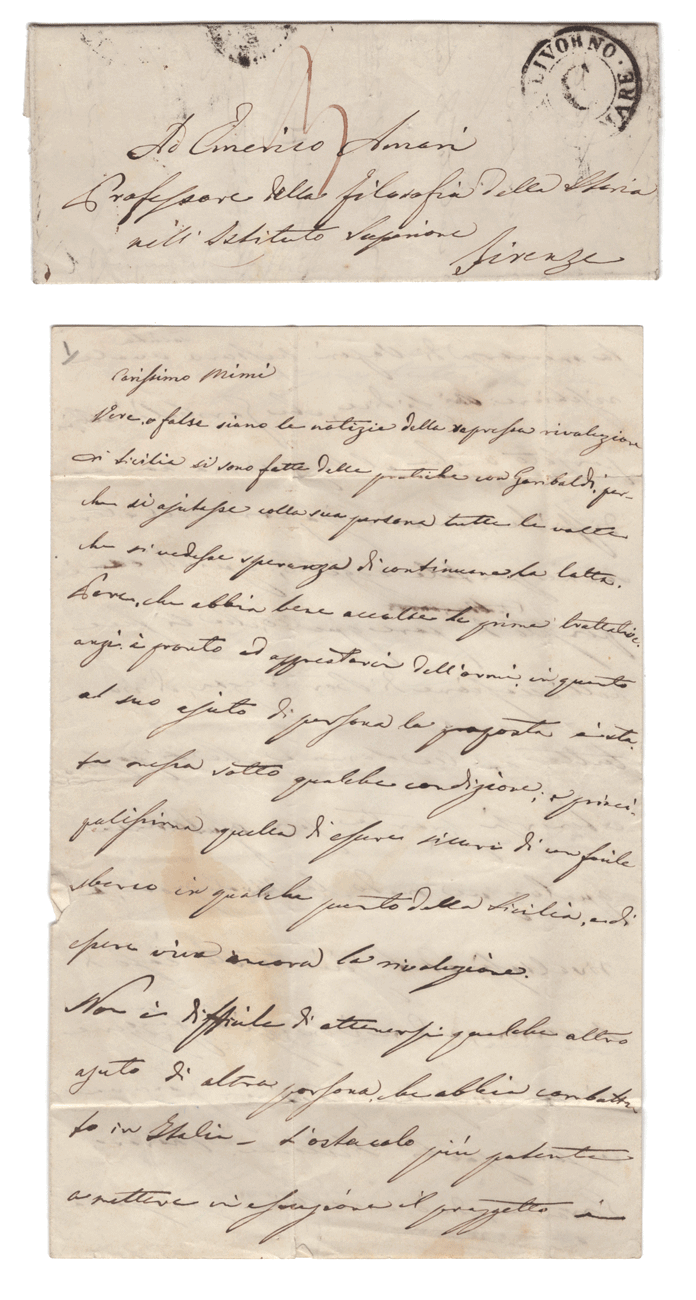 LIVORNO
3
Ad Emerico Amari
Professore della filosofia della Storia
nell'Istituto Superiore
Firenze
Carissimo Mimì
Vere, o false siano le notizie della repressa rivoluzione
di Sicilia si sono fatte delle pratiche con Garibaldi, per-
che si ajutasse colla sua persona tutte le volte
che si vedesse speranza di continuare la lotta.
Pare, che abbia bene accolte le prime trattative.
anzi è pronto ad apprestarci dell'armi, in quanto
al suo ajuto di persona la proposta è sta-
ta messa sotto qualche condizione; e princi-
palissima quella di essere sicuri di un facile
sbarco in qualche punto della Sicilia, e di
essere viva ancora la rivoluzione.
Non è difficile di ottenersi qualche altro
ajuto di altra persona, che abbia combattu-
to in Italia – L'ostacolo più potente
a mettere in esecuzione il progetto è